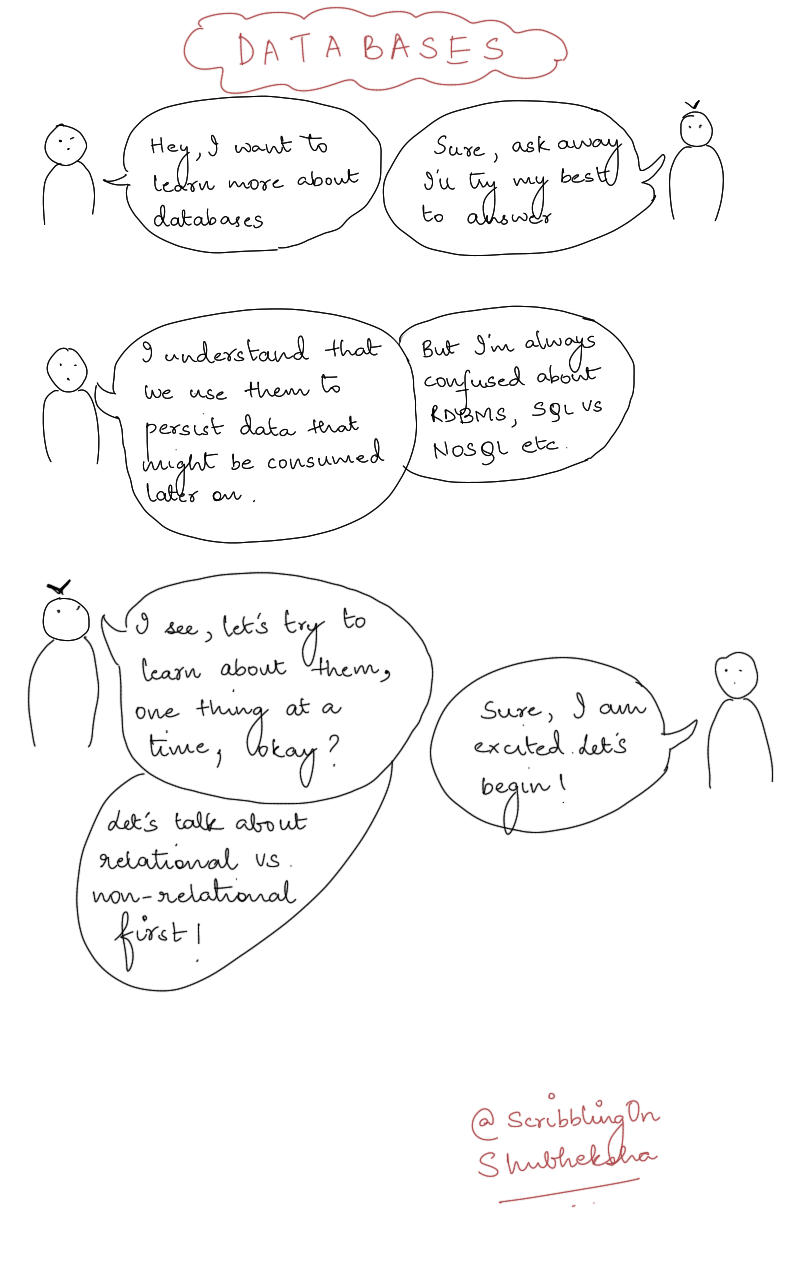 DATABASES
Hey, I want to
learn more about
databases
Sure, ask away
I'll try my best
to answer
I understand that
we use them to
persist data that
might be consumed
later on.
But I'm always
confused about
RDBMS, SQL vs
NOSQL etc.
I see, let's try to
learn about them,
one thing at a
time, okay?
Let's talk about
relational vs.
non-relational
first!
Sure, I am
excited. Let's
begin!
@ScribblingOn
Shubheksha